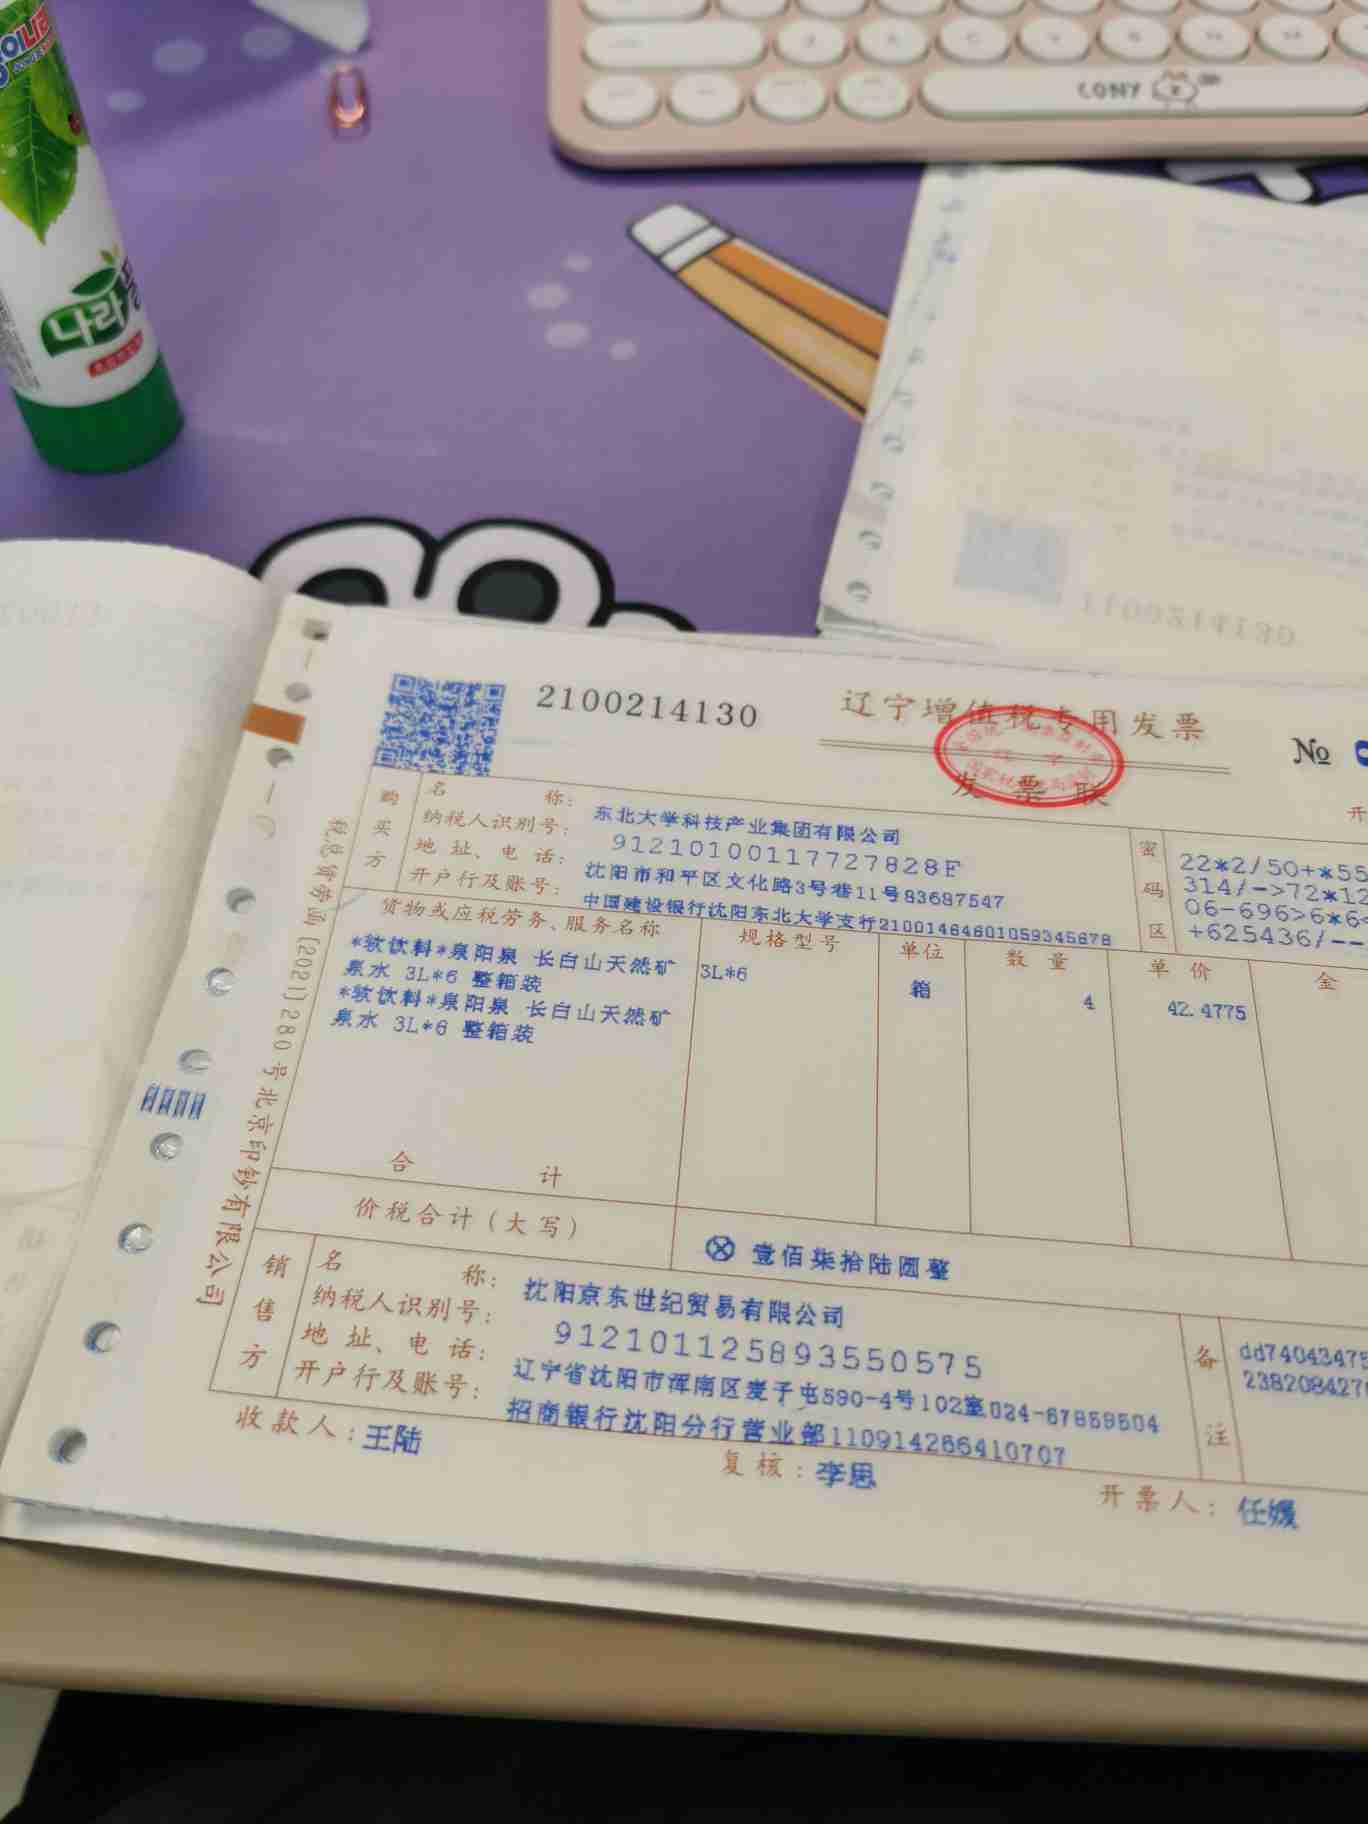 나라풀
CONY
2100214130
辽宁增值税专用发票
№
发票联
开
购买方
名 称: 东北大学科技产业集团有限公司
纳税人识别号: 91210100117727828F
地址、电话: 沈阳市和平区文化路3号巷11号83687547
开户行及账号: 中国建设银行沈阳东北大学支行21001464601059345678
密码区
22*2/50+*55
314/->72*12
06-696>6*6
+625436/--
货物或应税劳务、服务名称 规格型号 单位 数 量 单 价 金
*软饮料*泉阳泉 长白山天然矿 3L*6 箱 4 42.4775
泉水 3L*6 整箱装
*软饮料*泉阳泉 长白山天然矿
泉水 3L*6 整箱装
合 计
价税合计(大写) ⊗ 壹佰柒拾陆圆整
销售方
名 称: 沈阳京东世纪贸易有限公司
纳税人识别号: 912101125893550575
地址、电话: 辽宁省沈阳市浑南区麦子屯590-4号102室024-67859504
开户行及账号: 招商银行沈阳分行营业部110914266410707
备注
dd74043475
2382084270
收款人: 王陆
复核: 李思
开票人: 任媛
税总货劳函[2021]280号北京印钞有限公司